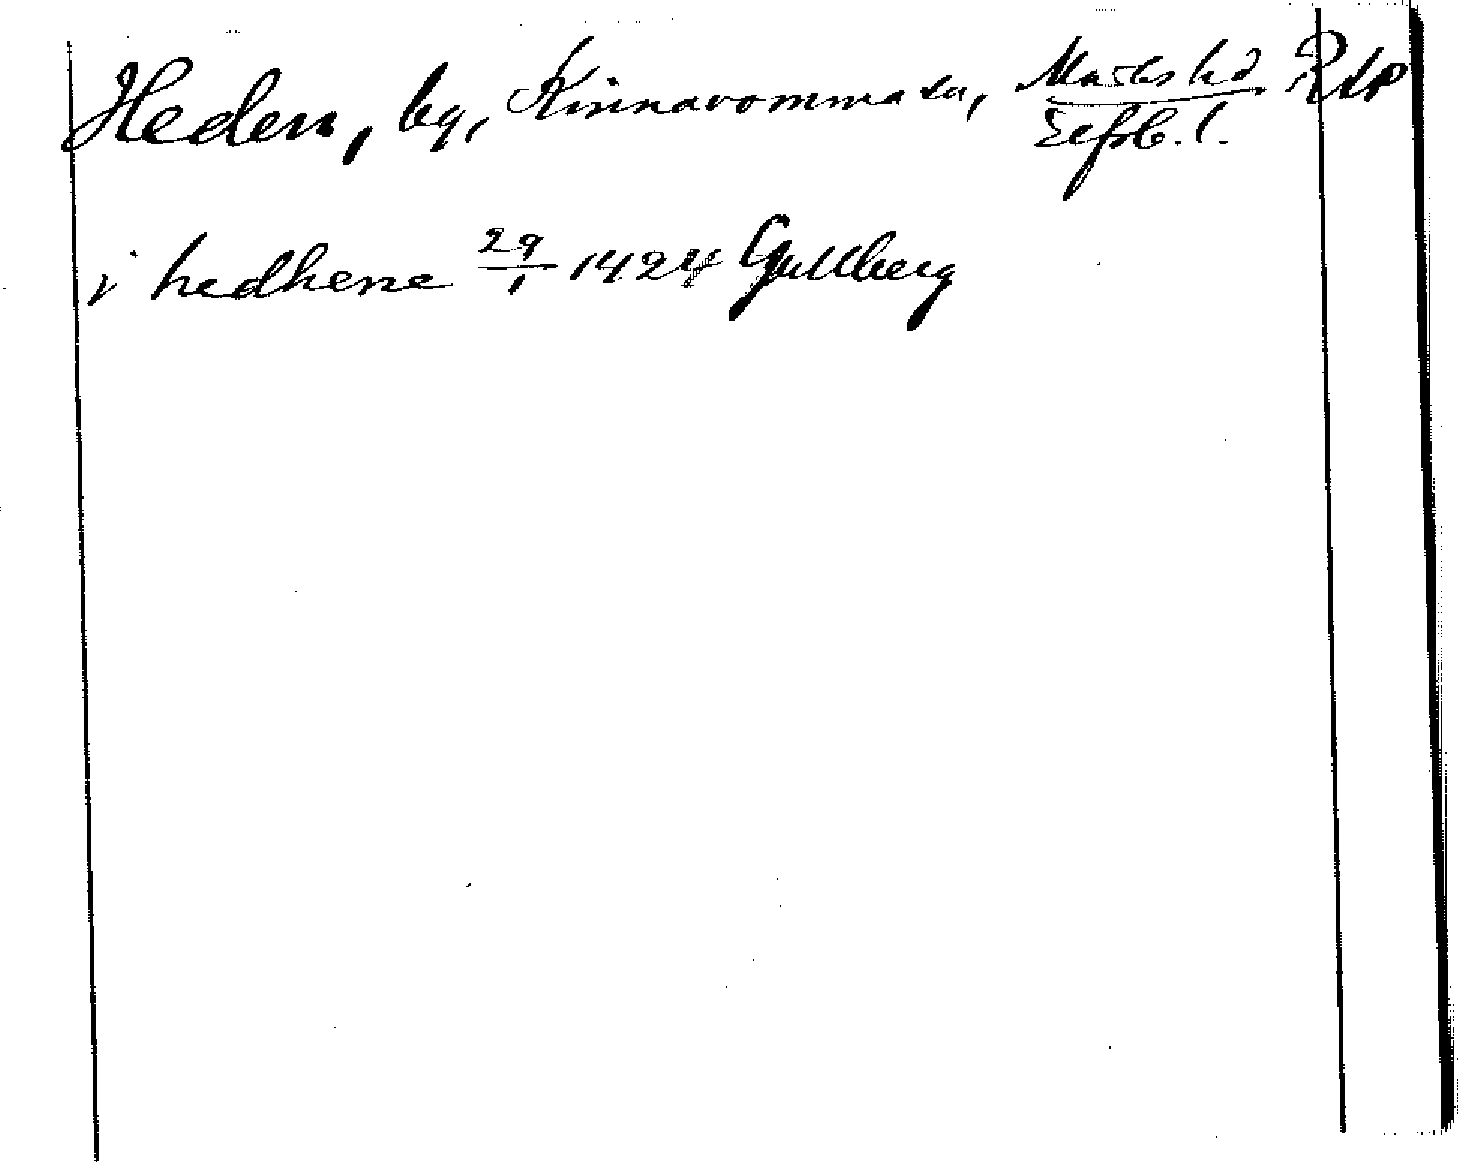 Heden, by, Kinnarumma sn, Marks hd Rdp
Elfsb. l.
i hedhene 29/1 1424 Gullberg